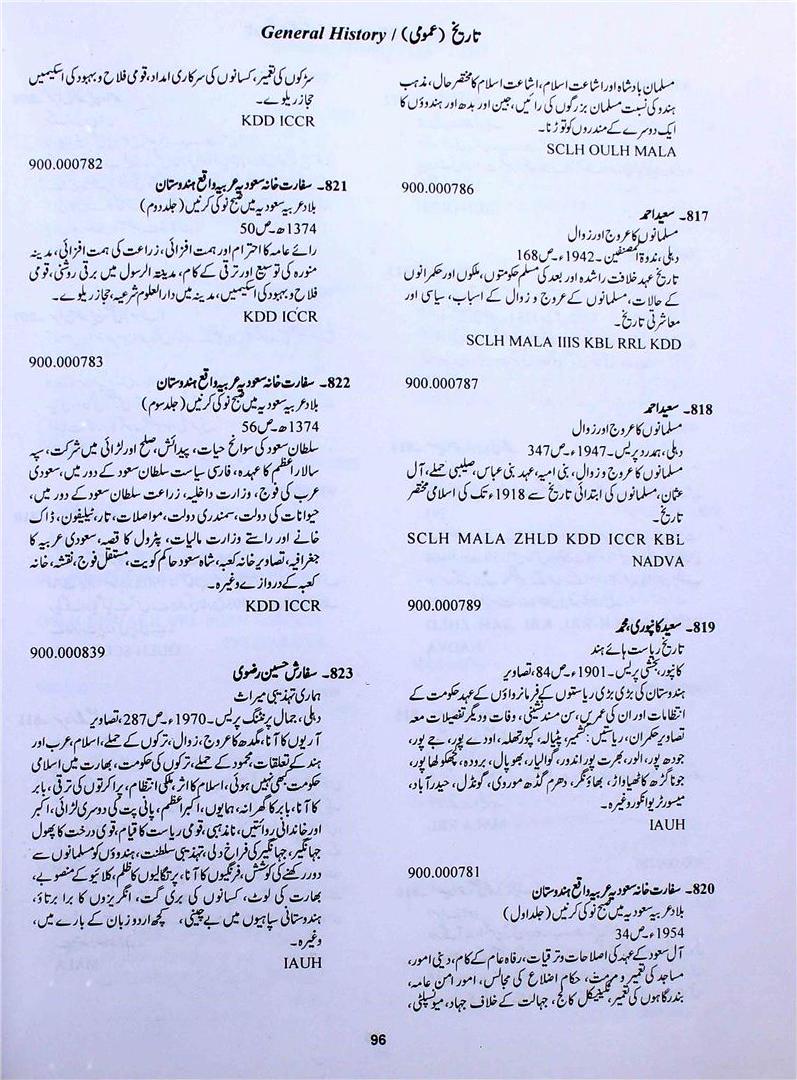 تاریخ (عمومی) / General History
مسلمان بادشاہ اور اشاعت اسلام، اشاعت اسلام کا مختصر حال، مذہب
ہندو کی نسبت مسلمان بزرگوں کی رائیں، جین اور بدھ اور ہندوؤں کا
ایک دوسرے کے مندروں کو توڑنا۔
SCLH OULH MALA
900.000786
817۔ سعید احمد
مسلمانوں کا عروج اور زوال
دہلی، ندوۃ المصنفین۔ 1942ء۔ ص168
تاریخ عہد خلافت راشدہ اور بعد کی مسلم حکومتوں، ملکوں اور حکمرانوں
کے حالات، مسلمانوں کے عروج و زوال کے اسباب، سیاسی اور
معاشرتی تاریخ۔
SCLH MALA IIIS KBL RRL KDD
900.000787
818۔ سعید احمد
مسلمانوں کا عروج اور زوال
دہلی، ہمدرد پریس۔ 1947ء۔ ص347
مسلمانوں کا عروج و زوال، بنی امیہ، عہد بنی عباس، صلیبی حملے، آل
عثمان، مسلمانوں کی ابتدائی تاریخ سے 1918ء تک کی اسلامی مختصر
تاریخ۔
SCLH MALA ZHLD KDD ICCR KBL
NADVA
900.000789
819۔ سعید کانپوری، محمد
تاریخ ریاست ہائے ہند
کانپور، بخشی پریس۔ 1901ء۔ ص84، تصاویر
ہندوستان کی بڑی بڑی ریاستوں کے فرمانرواؤں کے عہد حکومت کے
انتظامات اور ان کی عمریں، سن مسند نشینی، وفات و دیگر تفصیلات معہ
تصاویر حکمران، ریاستیں: کشمیر، پٹیالہ، کپورتھلہ، اودے پور، جے پور،
جودھ پور، الور، بھرت پور اندور، گوالیار، بھوپال، برودہ، چھکوٹھاپور،
جوناگڑھ کاٹھیاواڑ، بھاؤنگر، دھرم گڈھ موروی، گونڈل، حیدرآباد،
میسور ٹریوانکور وغیرہ۔
IAUH
900.000781
820۔ سفارت خانہ سعودیہ عربیہ واقع ہندوستان
بلاد عربیہ سعودیہ میں صبح نو کی کرنیں (جلد اول)
1954ء۔ ص34
آل سعود کے عہد کی اصلاحات و ترقیات، رفاہ عام کے کام، دینی امور،
مساجد کی تعمیر و مرمت، حکام اضلاع کی مجالس، امور امن عامہ،
بندرگاہوں کی تعمیر، ٹیکنیکل کالج، جہالت کے خلاف جہاد، میونسپلٹی،
سڑکوں کی تعمیر، کسانوں کی سرکاری امداد، قومی فلاح و بہبود کی اسکیمیں
حجاز ریلوے۔
KDD ICCR
900.000782
821۔ سفارت خانہ سعودیہ عربیہ واقع ہندوستان
بلاد عربیہ سعودیہ میں صبح نو کی کرنیں (جلد دوم)
1374ھ۔ ص50
رائے عامہ کا احترام اور ہمت افزائی، زراعت کی ہمت افزائی، مدینہ
منورہ کی توسیع اور ترقی کے کام، مدینۃ الرسول میں برقی روشنی، قومی
فلاح و بہبود کی اسکیمیں، مدینہ میں دارالعلوم شرعیہ، حجاز ریلوے۔
KDD ICCR
900.000783
822۔ سفارت خانہ سعودیہ عربیہ واقع ہندوستان
بلاد عربیہ سعودیہ میں صبح نو کی کرنیں (جلد سوم)
1374ھ۔ ص56
سلطان سعود کی سوانح حیات، پیدائش، صلح اور لڑائی میں شرکت، سپہ
سالار اعظم کا عہدہ، فارسی سیاست سلطان سعود کے دور میں، سعودی
عرب کی فوج، وزارت داخلیہ، زراعت سلطان سعود کے دور میں،
حیوانات کی دولت، سمندری دولت، مواصلات، تار، ٹیلیفون، ڈاک
خانے اور راستے وزارت مالیات، پٹرول کا قصہ، سعودی عربیہ کا
جغرافیہ، تصاویر خانہ کعبہ، شاہ سعود حاکم کویت، مستقل فوج، نقشہ، خانہ
کعبہ کے دروازے وغیرہ۔
KDD ICCR
900.000839
823۔ سفارش حسین رضوی
ہماری تہذیبی میراث
دہلی، جمال پرنٹنگ پریس۔ 1970ء۔ ص287، تصاویر
آریوں کا آنا، مگدھ کا عروج، زوال، ترکوں کے حملے، اسلام، عرب اور
ہند کے تعلقات، محمود کے حملے، ترکوں کی حکومت، بھارت میں اسلامی
حکومت کبھی نہیں ہوئی، اسلام کا اثر، ملکی انتظام، پراکرتوں کی ترقی، بابر
کا آنا، بابر کا گھرانہ، ہمایوں، اکبر اعظم، پانی پت کی دوسری لڑائی، اکبر
اور خاندانی روائتیں، نا مذہبی، قومی ریاست کا قیام، قومی درخت کا پھول
جہانگیر، جہانگیر کی فراخ دلی، تہذیبی سلطنت، ہندوؤں کو مسلمانوں سے
دور رکھنے کی کوشش، فرنگیوں کا آنا، پرتگالیوں کا ظلم، کلائیو کے منصوبے،
بھارت کی لوٹ، کسانوں کی بری گت، انگریزوں کا برا برتاؤ،
ہندوستانی سپاہیوں میں بے چینی، کچھ اردو زبان کے بارے میں،
وغیرہ۔
IAUH
96